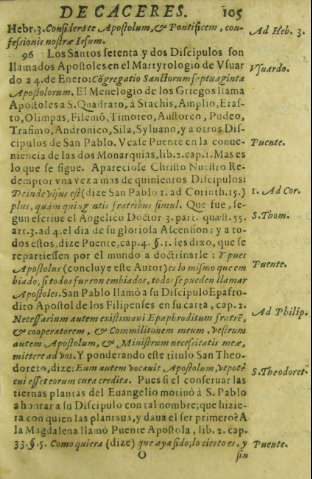 DE CACERES. 105
Hebr. 3. Considerate Apostolum, & Pontificem, con-
fessionis nostræ Iesum.
Ad Heb. 3.
96 Los Santos setenta y dos Discipulos son
llamados Apostoles en el Martyrologio de Vsuar
do a 4. de Enero: Cõgregatio Sanctorum septuaginta
Vsuardo.
Apostolorum. El Menelogio de los Griegos llama
Apostoles a S. Quadrato, à Stachis, Amplio, Eras-
to, Olimpas, Filemõ, Timoteo, Aristarco, Pudeo,
Trofimo, Andronico, Sila, Syluano, y a otros Dis-
cipulos de San Pablo. Vease Puente en la conue-
Puente.
niencia de las dos Monarquias, lib. 2. cap. 1. Mas es
lo que se sigue. Apareciose Christo Nuestro Re-
demptor vna vez a mas de quinientos Discipulos:
Deinde visus est (dize San Pablo 1. ad Corinth. 15.)
1. Ad Cor.
plus, quàm quingentis fratribus simul. Que fue, se-
gun escriue el Angelico Doctor 3. part. quæst. 55.
S. Thom.
art. 3. ad 4. el dia de su gloriosa Ascension: y a to-
dos estos, dize Puente, cap. 4. §. 1. les dixo, que se
repartiessen por el mundo a doctrinarle: Y pues
Apostolus (concluye este Autor) es lo mismo que em
Puente.
biado, si todos fueron embiados, todos se pueden llamar
Apostoles. San Pablo llamò a su Discipulo Epafro-
dito Apostol de los Filipenses en su carta, cap. 2.
Necessarium autem existimaui Epaphroditum fratrẽ,
Ad Philip.
& cooperatorem, & commilitonem meum, vestrum
autem Apostolum, & Ministrum necessitatis meæ,
mittere ad vos. Y ponderando este titulo San Theo-
doreto, dize: Eum autem vocauit Apostolum, vtpotè
S. Theodoret.
cui esset eorum cura credita. Pues si el conseruar las
tiernas plantas del Euangelio motiuò à S. Pablo
a honrar a su Discipulo con tal nombre; que hizie-
ra con quien las plantaua, y daua el ser primero? A
la Magdalena llamò Puente Apostola, lib. 2. cap.
33. §. 5. Como quiera (dize) que aya sido; lo cierto es, y
Puente.
O sin